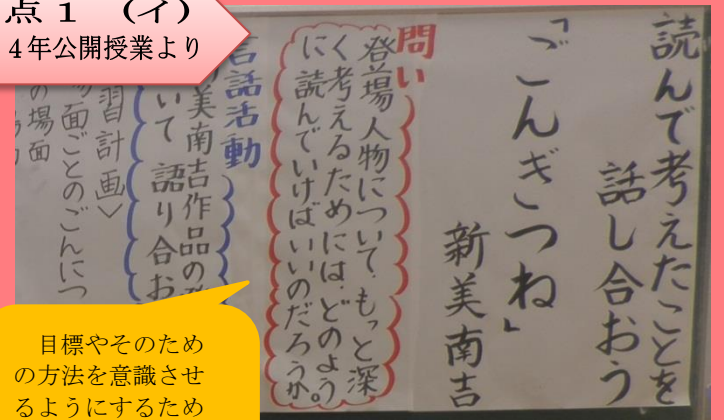 点１（イ）
４年公開授業より
読んで考えたことを
話し合おう
「ごんぎつね」
新美南吉
問い
登場人物について、もっと深
く考えるためには、どのよう
に読んでいけばいいのだろうか。
言語活動
美南吉作品の
いて 語り合お
習計画〉
場面ごとのごんにつ
の場面
目標やそのため
の方法を意識させ
るようにするため